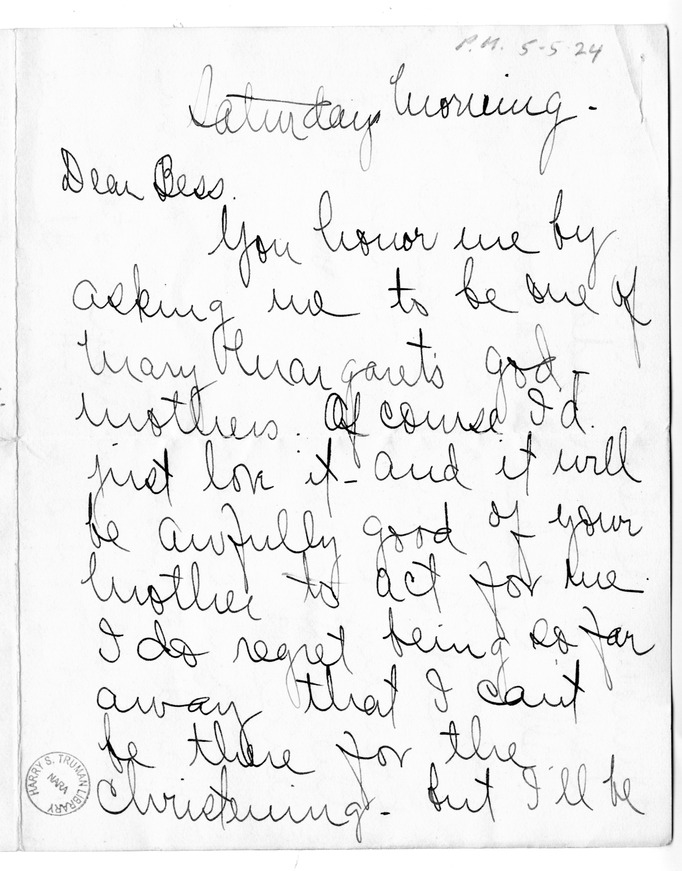 P.M. 5-5-24
Saturday Morning -
Dear Bess.
You honor me by
asking me to be one of
Mary Margaret's god-
mothers. Of course I'd
just love it - and it will
be awfully good of your
mother to act for me.
I do regret being so far
away that I can't
be there for the
Christening - but I'll be
HARRY S. TRUMAN LIBRARY
NARA